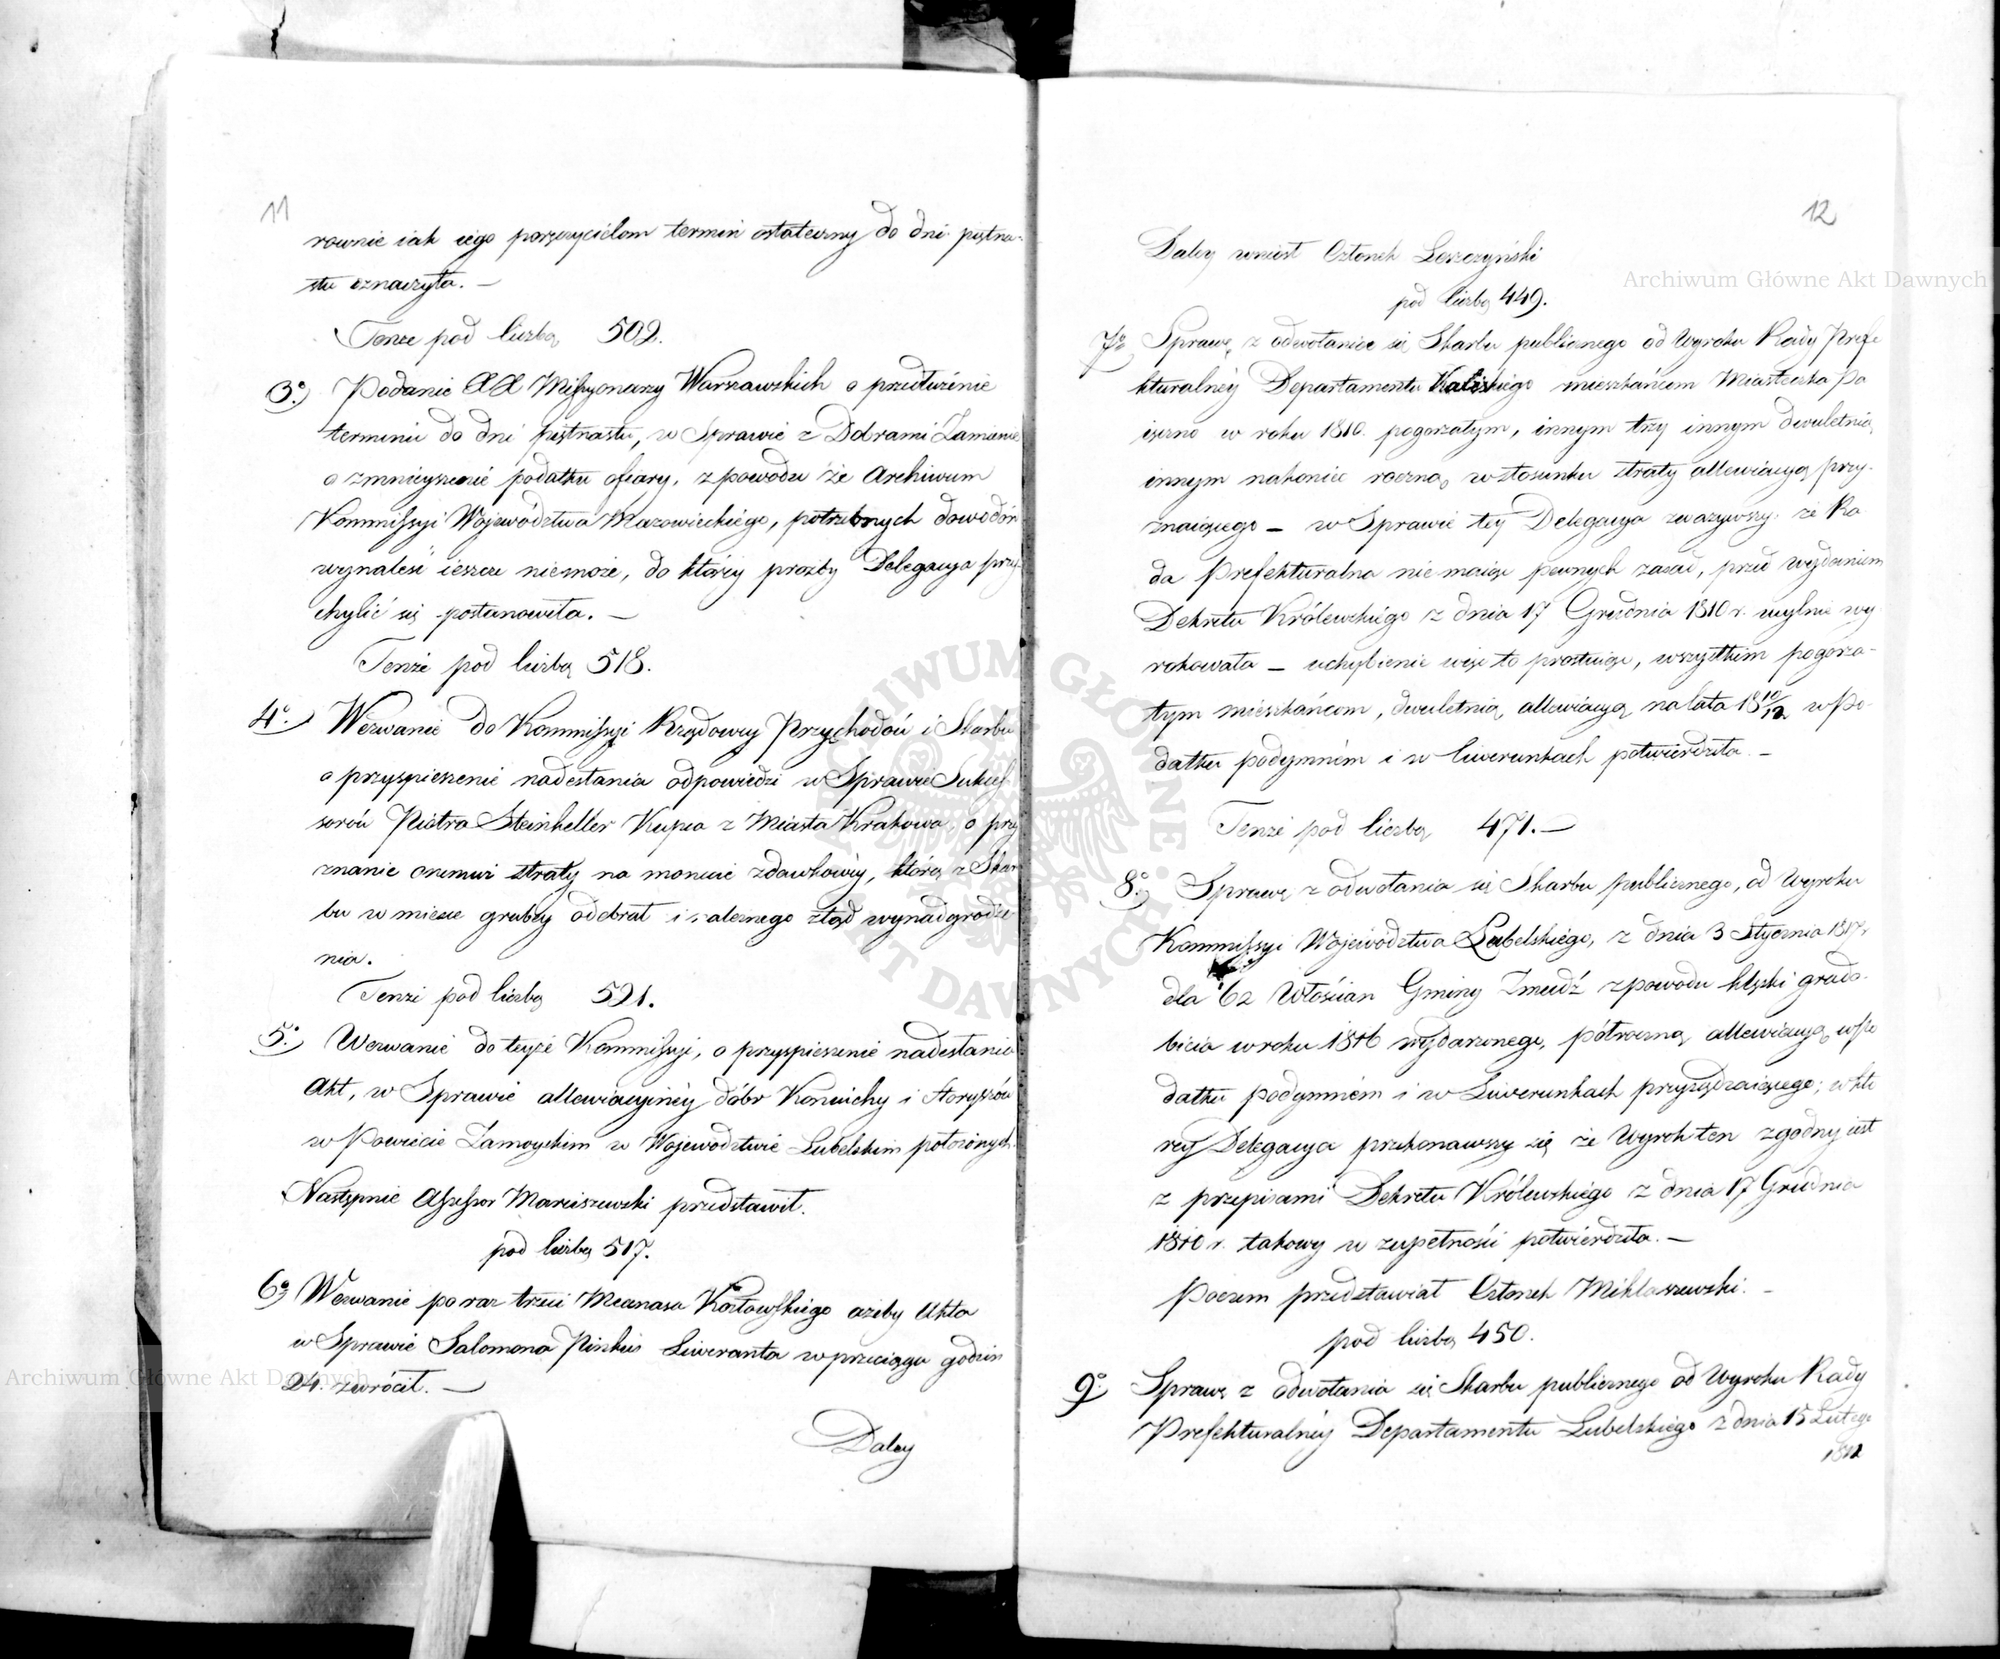 11
rownie iak iego poręczycielom termin ostateczny do dni piętna-
stu oznaczyła. —
Tenże pod liczbą 502.
3o) Podanie XX Missyonarzy Warszawskich o przedłużenie
terminu do dni piętnastu, w Sprawie z Dobrami Zamienie
o zmnieyszenie podatku ofiary, z powodu że Archiwum
Kommissyi Województwa Mazowieckiego, potrzebnych dowodów
wynaleść ieszcze niemoże, do któréy prozby Delegacya przy-
chylić się postanowiła. —
Tenże pod liczbą 518.
4o.) Wezwanie do Kommissyi Rządowey Przychodów i Skarbu
o przyspieszenie nadesłania odpowiedzi w Sprawie Sukces-
sorów Piotra Steinkeller Kupca z Miasta Krakowa, o przy
znanie onemuż straty na monecie zdawkowéy, którą z Skar
bu w miesce grubéy odebrał i należnego ztąd wynadgrodze-
nia.
Tenże pod liczbą 521.
5o.) Wezwanie do teyże Kommissyi, o przyspieszenie nadesłania
Akt, w Sprawie allewiacyinéy dóbr Koniuchy i Horyszów
w Powiecie Zamoyskim w Województwie Lubelskim położonych.
Następnie Assessor Marciszewski przedstawił.
pod liczbą 517.
6o) Wezwanie po raz trzeci Mecenasa Kozłowskiego ażeby Akta
w Sprawie Salomona Pinkus Liweranta w przeciągu godzin
24. zwrócił. —
Daley
12
Daley wniosł Członek Leszczyński
pod liczbą 449.
7o) Sprawę z odwołania się Skarbu publicznego od Wyroku Rady Prefe
kturalnéy Departamentu Kaliskiego mieszkańcom Miasteczka Pa
ięczno w roku 1810. pogorzałym, innym trzy innym dwuletnią,
innym nakoniec roczną, w stosunku straty allewiacyą przy-
znaiącego — w Sprawie tey Delegacya zważywszy że Ra
da Prefekturalna nie maiąc pewnych zasad, przed wydaniem
Dekretu Królewskiego z dnia 17 Grudnia 1810 r. mylnie wy
rokowała — uchybienie więc to prostuiąc, wszystkim pogorza-
łym mieszkańcom, dwuletnią allewiacyą na lata 18 10/12 w Po-
datku podymném i w liwerunkach potwierdziła. —
Tenże pod liczbą 471. —
8o.) Sprawę z odwołania się Skarbu publicznego, od Wyroku
Kommissyi Województwa Lubelskiego, z dnia 3 Stycznia 1817 r
dla 62 Włościan Gminy Zmudź z powodu klęski grado-
bicia w roku 1816 wydarzonego, półroczną allewiacyą w Po
datku podymném i w Liwerunkach przysądzaiącego; w któ
rey Delegacya przekonawszy się że Wyrok ten zgodny iest
z przepisami Dekretu Królewskiego z dnia 17 Grudnia
1810 r. takowy w zupełności potwierdziła. —
Poczem przedstawiał Członek Miklaszewski. —
pod liczbą 450.
9o.) Sprawę z odwołania się Skarbu publicznego od Wyroku Rady
Prefekturalnéy Departamentu Lubelskiego z dnia 15 Lutego
1812
Archiwum Główne Akt Dawnych
Archiwum Główne Akt Dawnych
ARCHIWUM GŁÓWNE AKT DAWNYCH